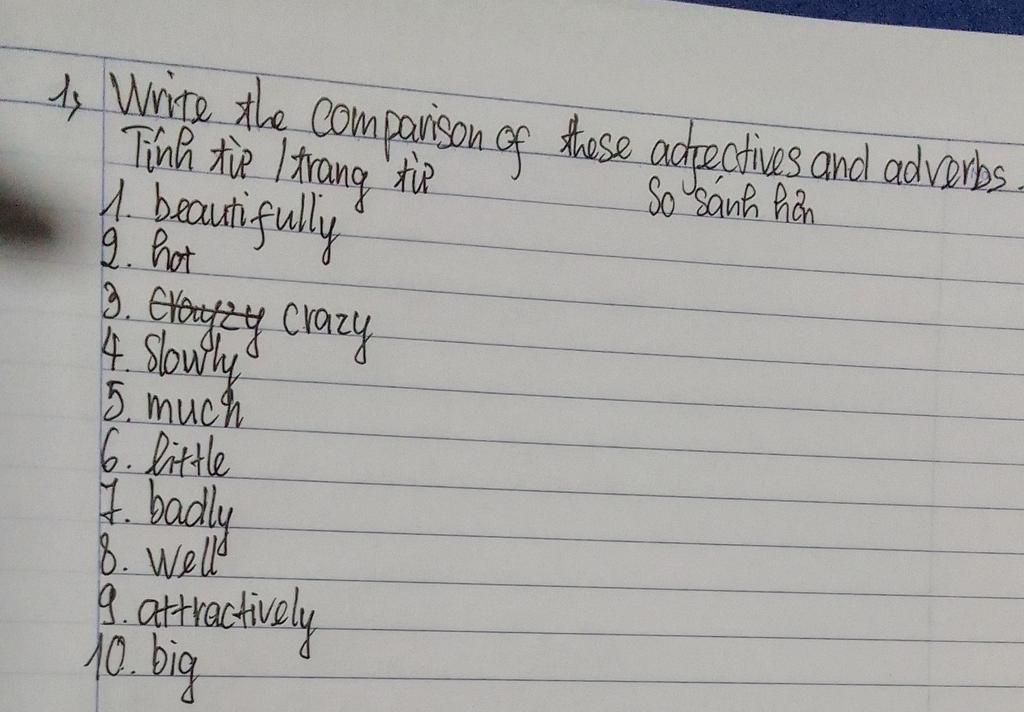 1, Write the comparison of these adjectives and adverbs.
Tính từ / trang từ
So sánh hơn
1. beautifully
2. hot
3. crayzy crazy
4. Slowly
5. much
6. little
7. badly
8. Well
9. attractively
10. big